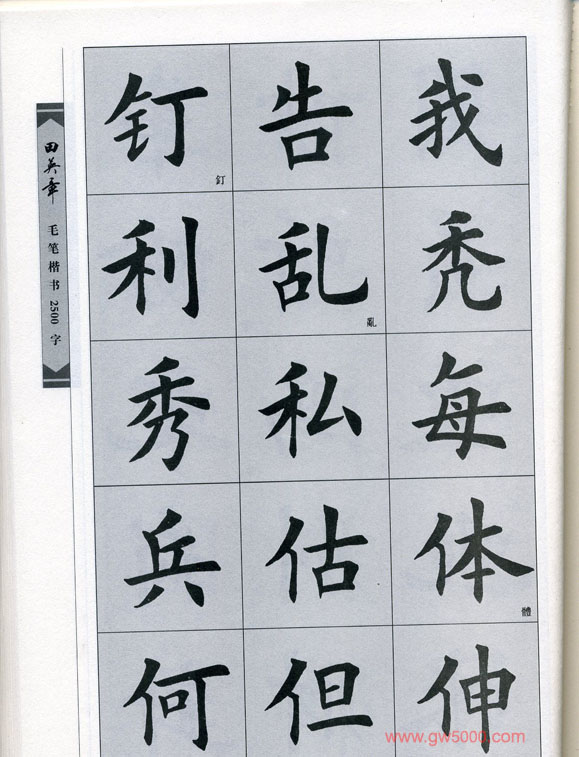 钉 告 我
釘
利 乱 秃
亂
秀 私 每
兵 估 体
體
何 但 伸
田英章 毛笔楷书 2500 字
www.gw5000.com